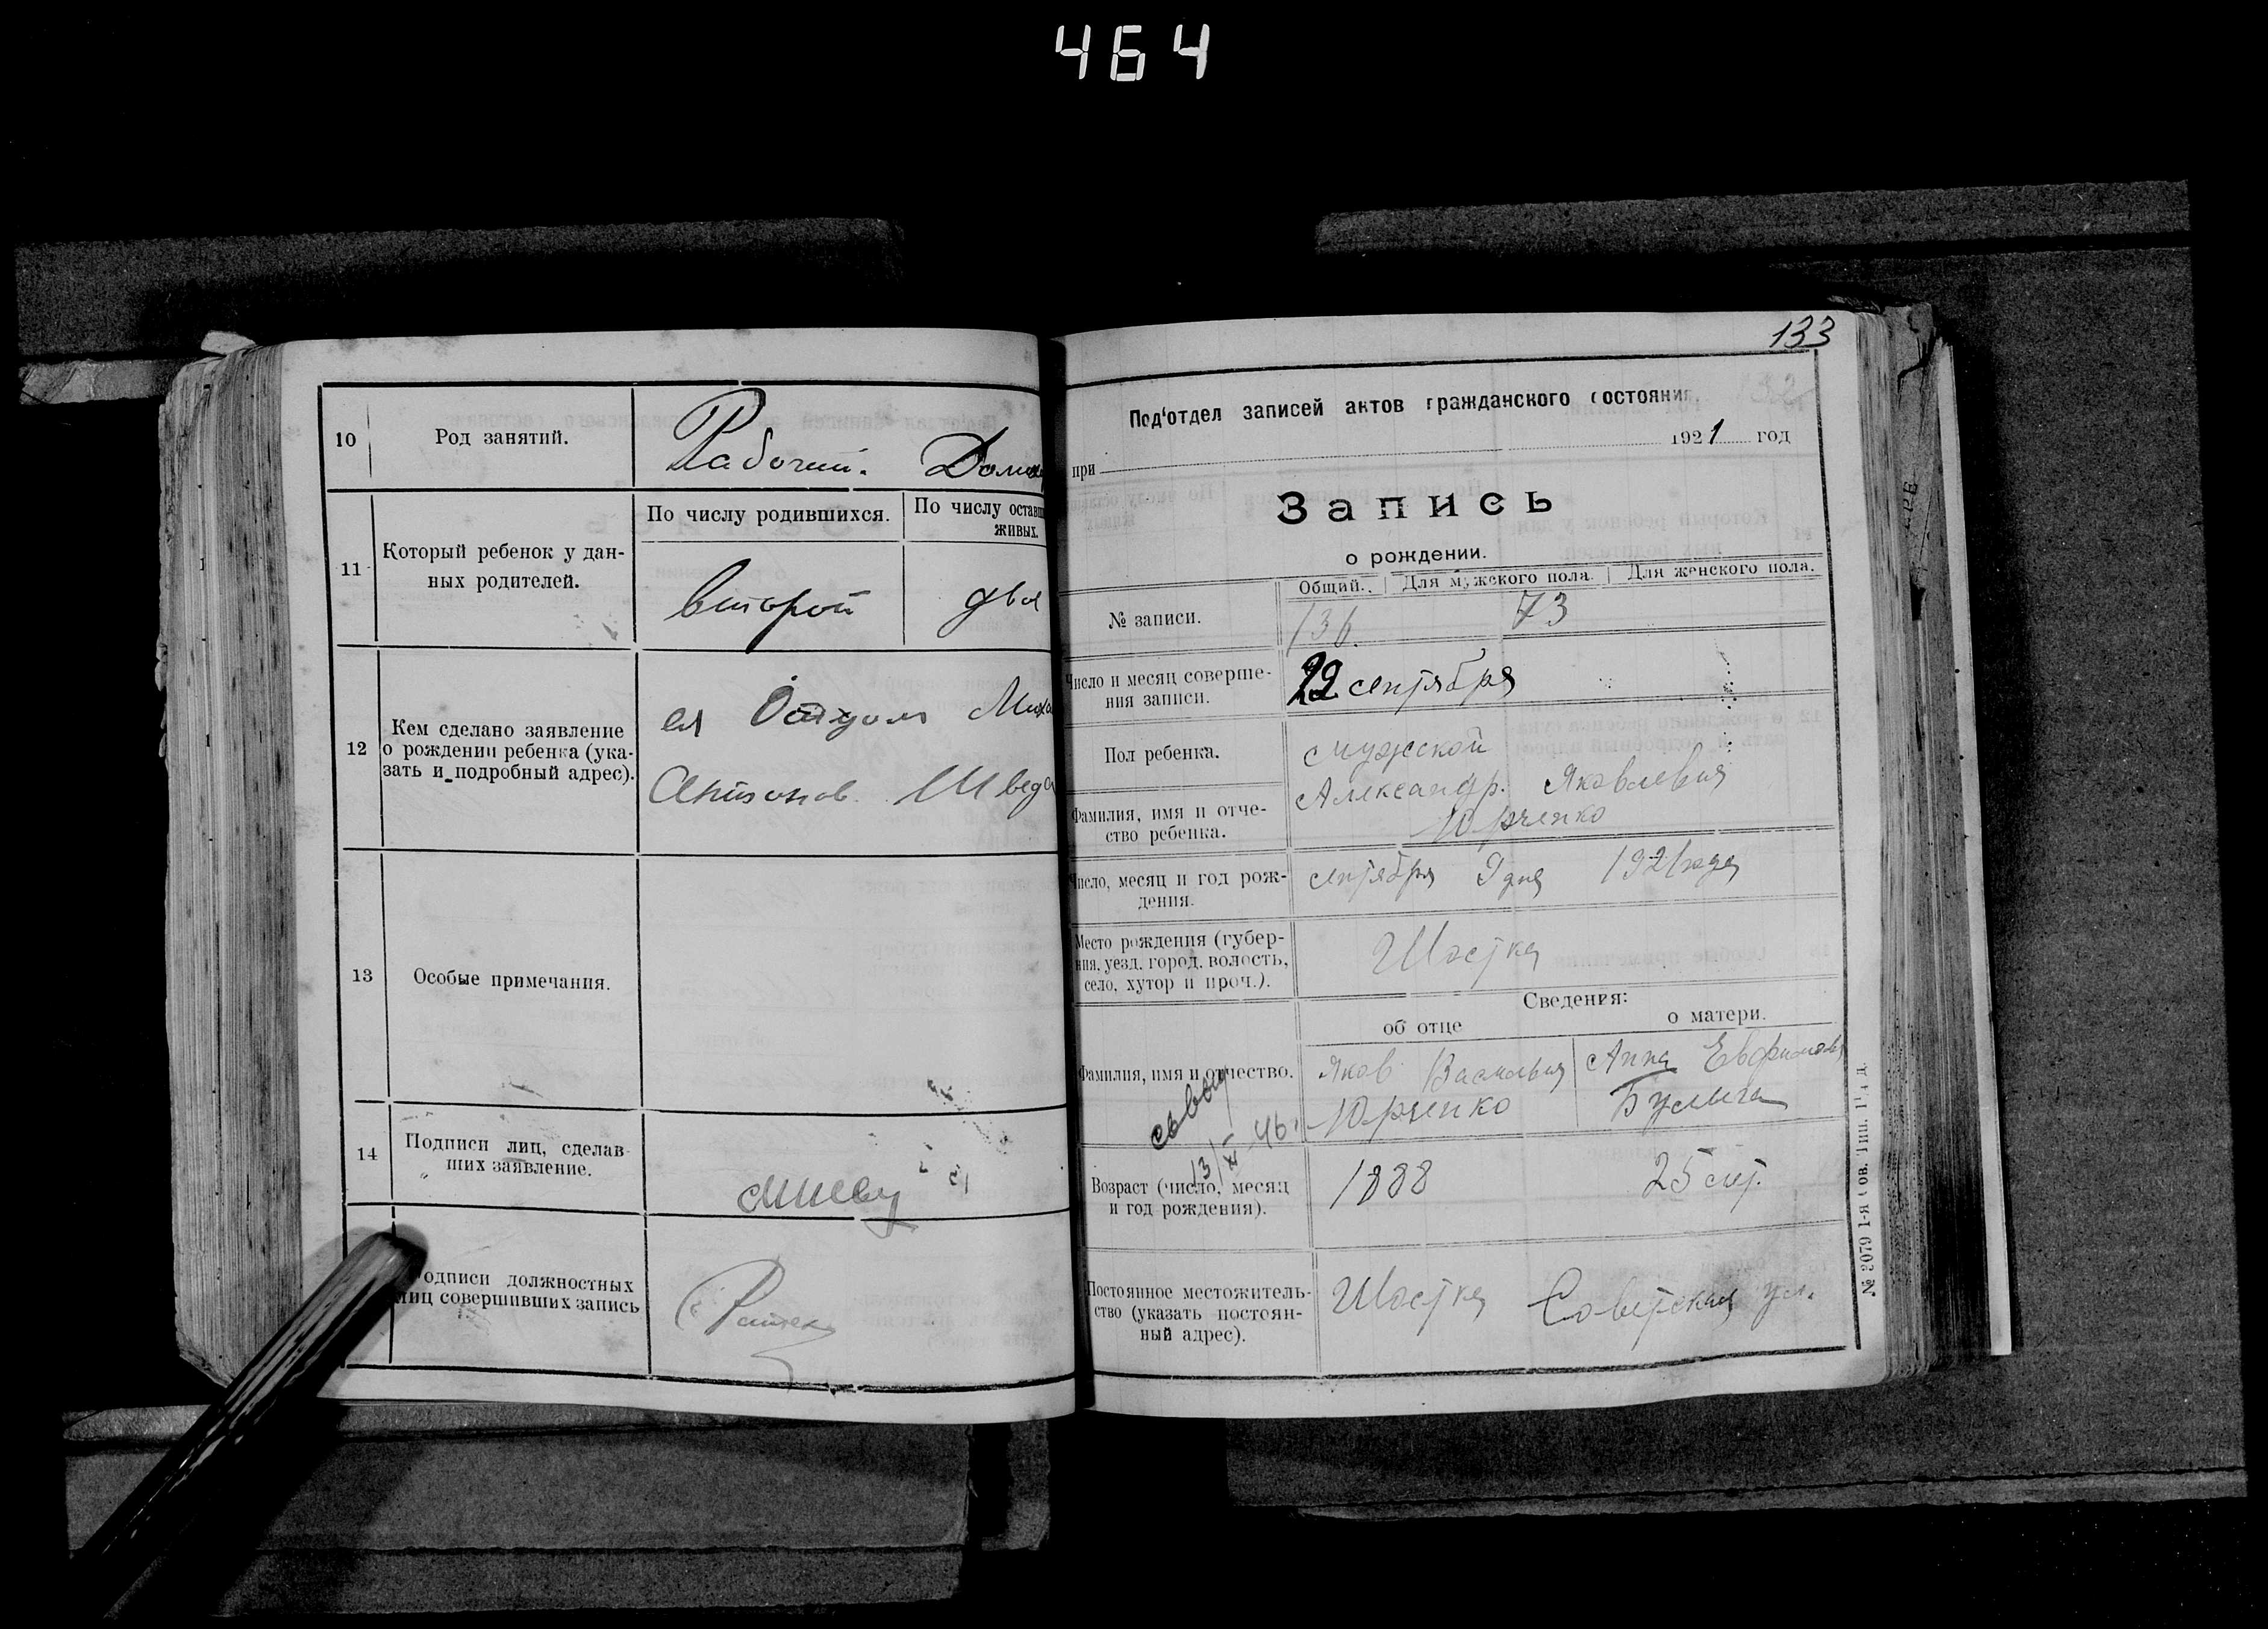 464
10 Род занятий. Рабочий. Дома
11 Который ребенок у дан-
ных родителей.
По числу родившихся. По числу оставш
живых.
второй два
12 Кем сделано заявление
о рождении ребенка (ука-
зать и подробный адрес).
ея Отцом Миха
Антонов. Швед
13 Особые примечания.
14 Подписи лиц, сделав
ших заявление.
МШвец
одписи должностных
лиц совершивших запись
133
132
Под'отдел записей актов гражданского состояния,
при 1921 год
Запись
о рождении.
№ записи.
Общий. Для мужского пола. Для женского пола.
136. 73
Число и месяц соверше-
ния записи.
22 сентября
Пол ребенка.
мужской
Фамилия, имя и отче-
ство ребенка.
Александр. Яковлевич
Юрченко
Число, месяц и год рож-
дения.
сентября 9 дня 1921 года
Место рождения (губер-
ния, уезд, город, волость,
село, хутор и проч.).
Шостка
Сведения:
об отце о матери.
Фамилия, имя и отчество.
Яков Васильевич
Юрченко
Анна Евфимовна
13/XI-46.
Возраст (число, месяц
и год рождения).
1888 25 лет.
Постоянное местожитель-
ство (указать постоян-
ный адрес).
Шостка Советская ул.